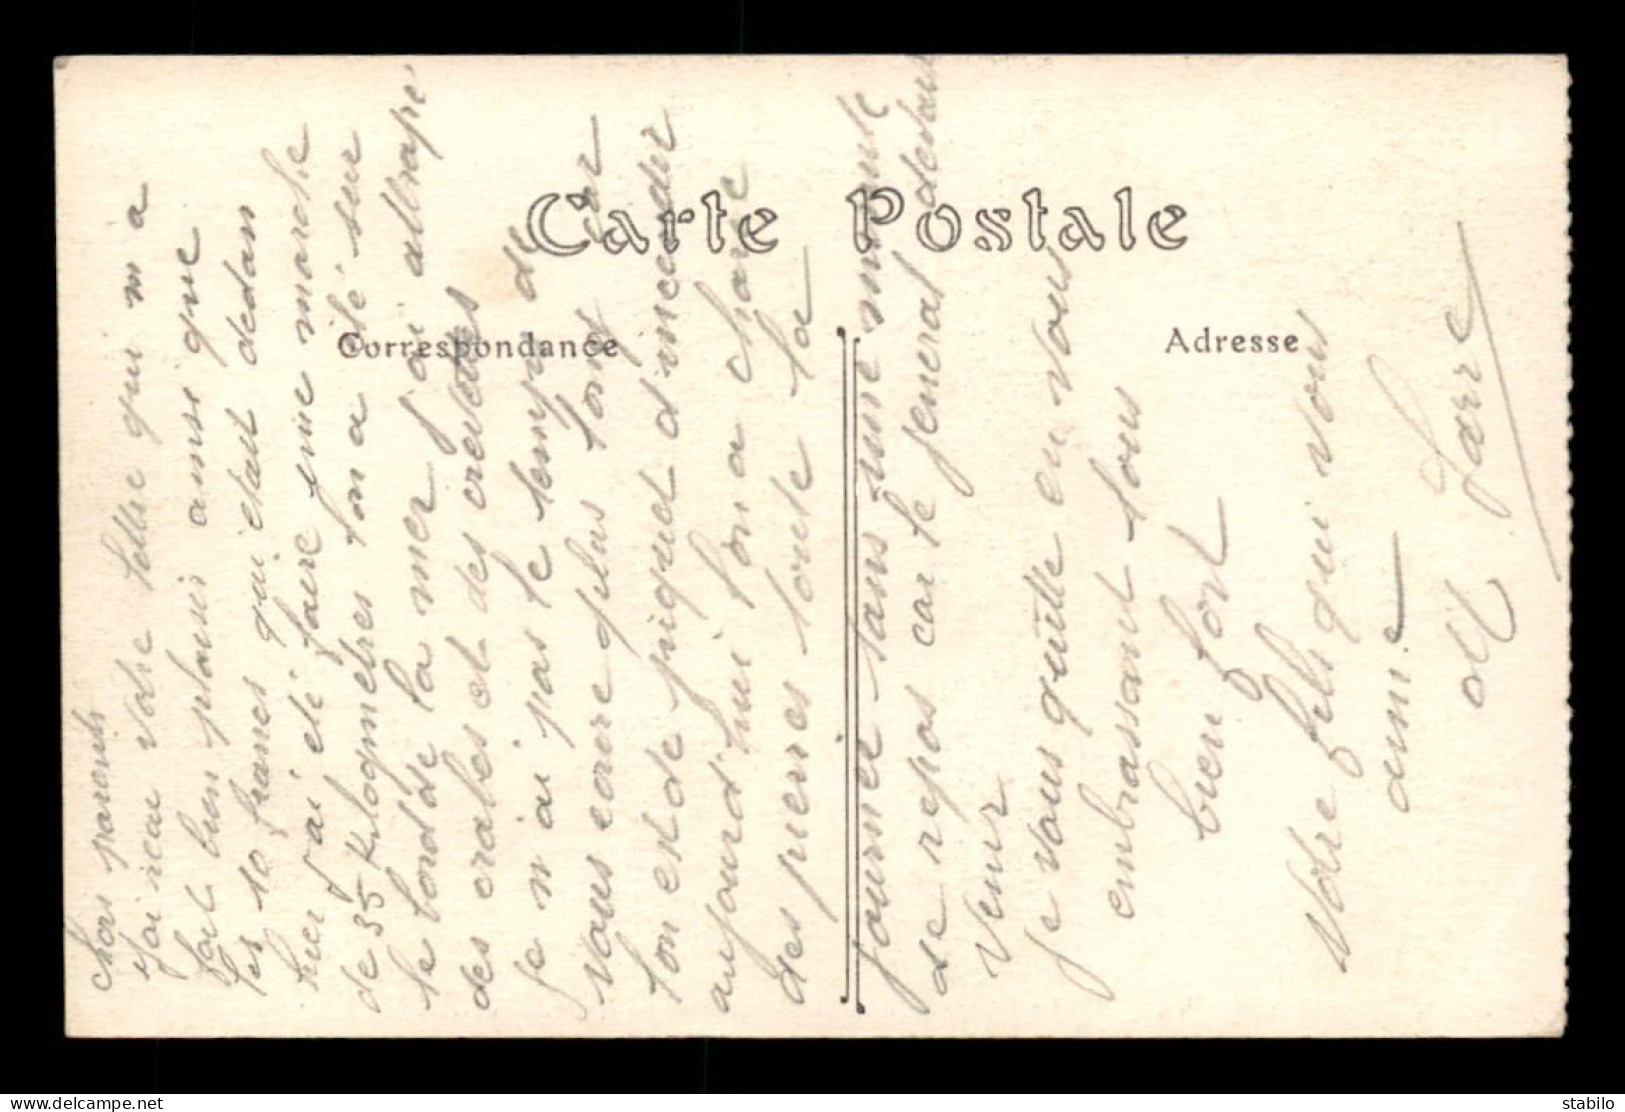 Carte Postale
Correspondance
Adresse
chers parents
j'ai recu votre lettre qui m a
fait bien plaisir ainsi que
les 10 francs qui etait dedan
hier j'ai eté faire une marche
de 35 Kilogmetres lon a été sur
le bord de la mer j'ai attrape
des crables et des crevettes
je n ai pas le temps de
vous ecrire plus lont car
lon est de piquet d'incendie
aujourd'hui lon a charie
des pierres toute la
journee sans une minute
de repos car le jeneral devait
venir
je vous quitte en vous
embrassant tous
bien fort
Votre fils qui vous
aime
delcampe.net
stabilo